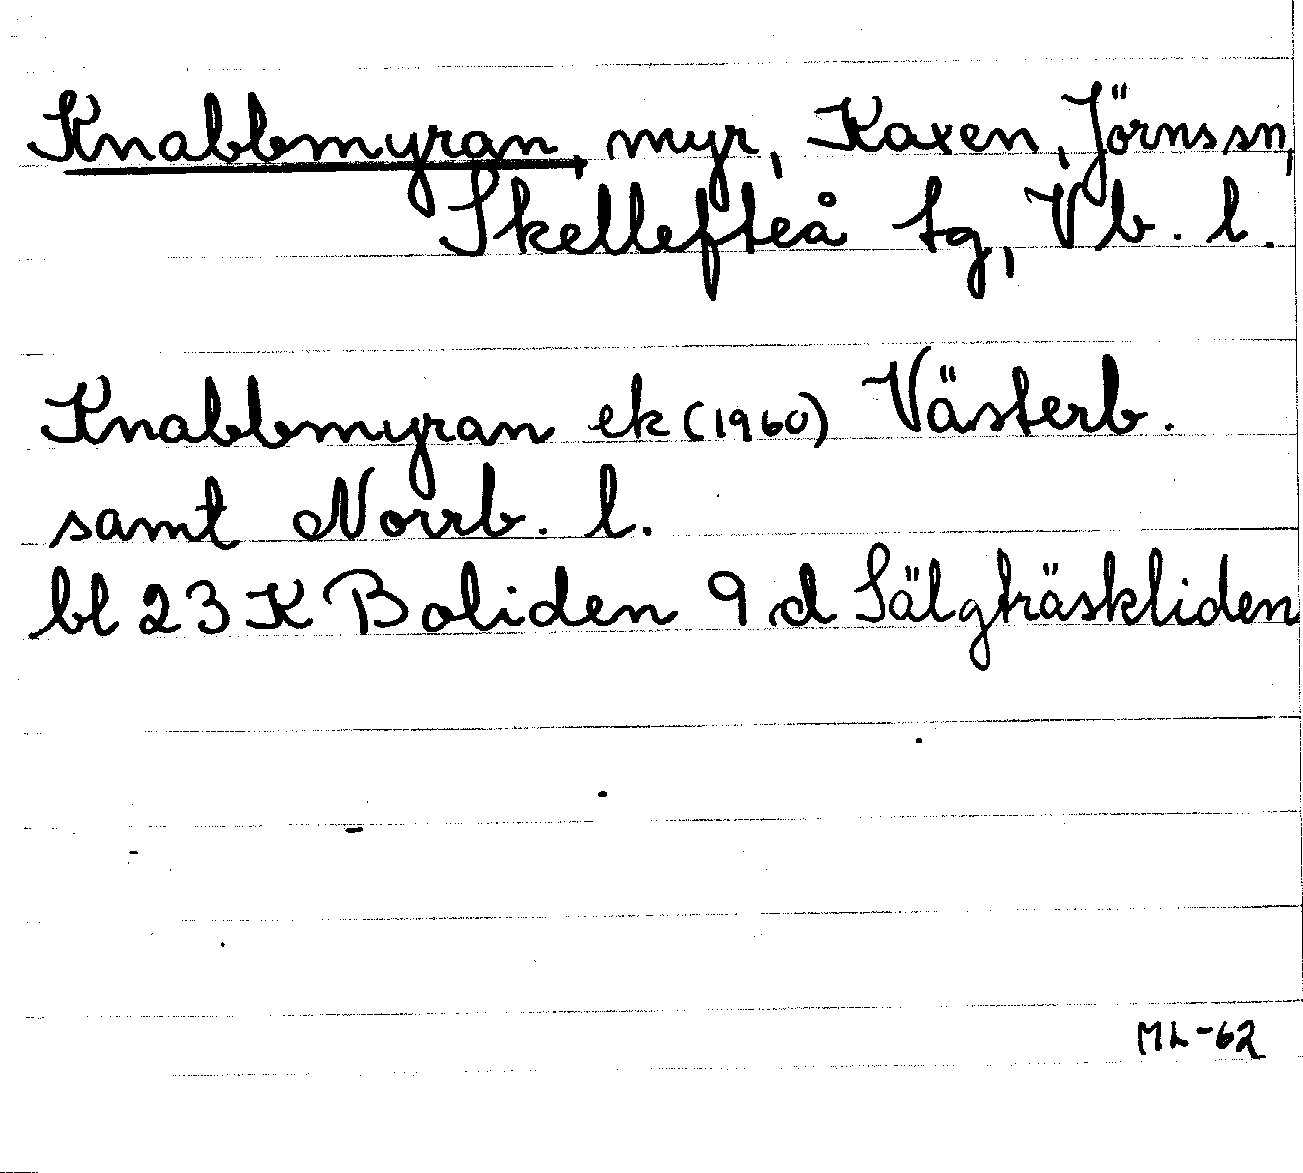 Knabbmyran, myr, Kaxen, Jörns sn,
Skellefteå tg, Vb. l.
Knabbmyran ek (1960) Västerb.
samt Norrb. l.
bl 23 K Boliden 9 d Sälgträskliden
ML-62